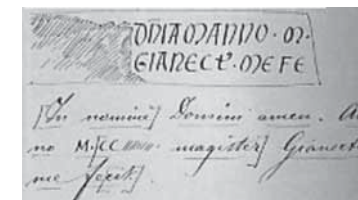 DN̄IAMANNO · M·
GIANECT · MEFE
[In nomini] Domini amen. An
no M.[CC ''''' magister] Gianect
me fecit].